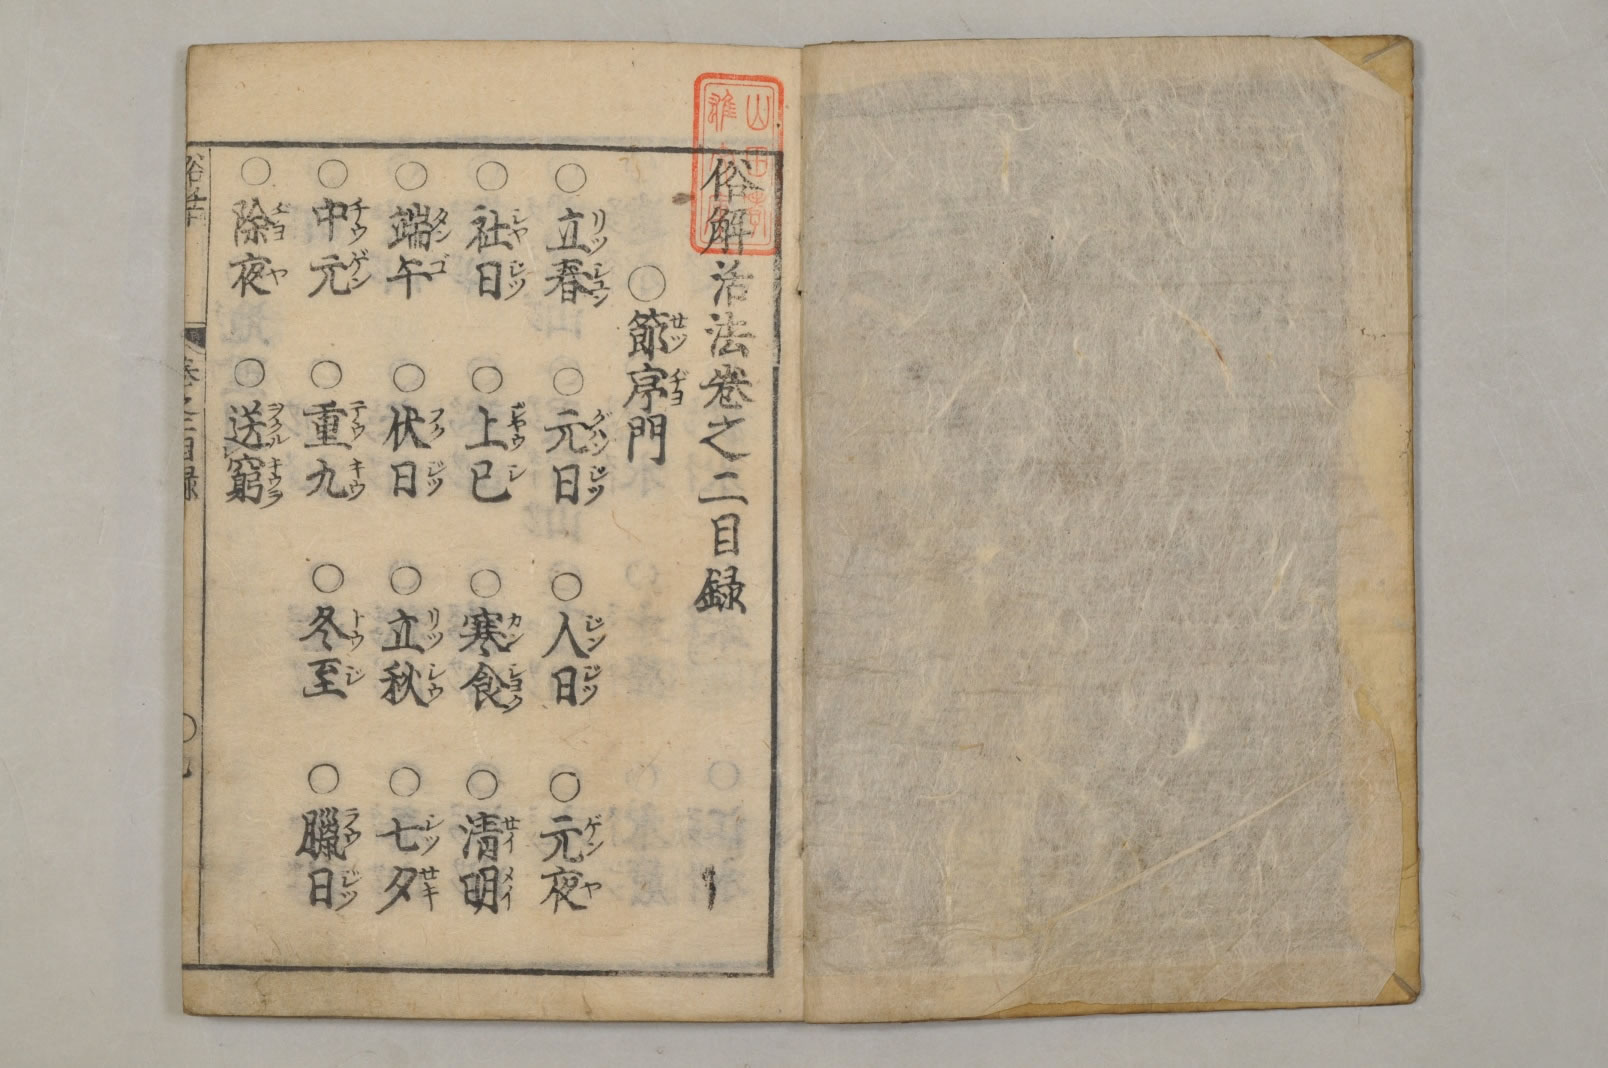 俗解活法巻之二目録
○節序門
○立春 ○元日 ○人日 ○元夜
○社日 ○上巳 ○寒食 ○清明
○端午 ○伏日 ○立秋 ○七夕
○中元 ○重九 ○冬至 ○臘日
○除夜 ○送窮